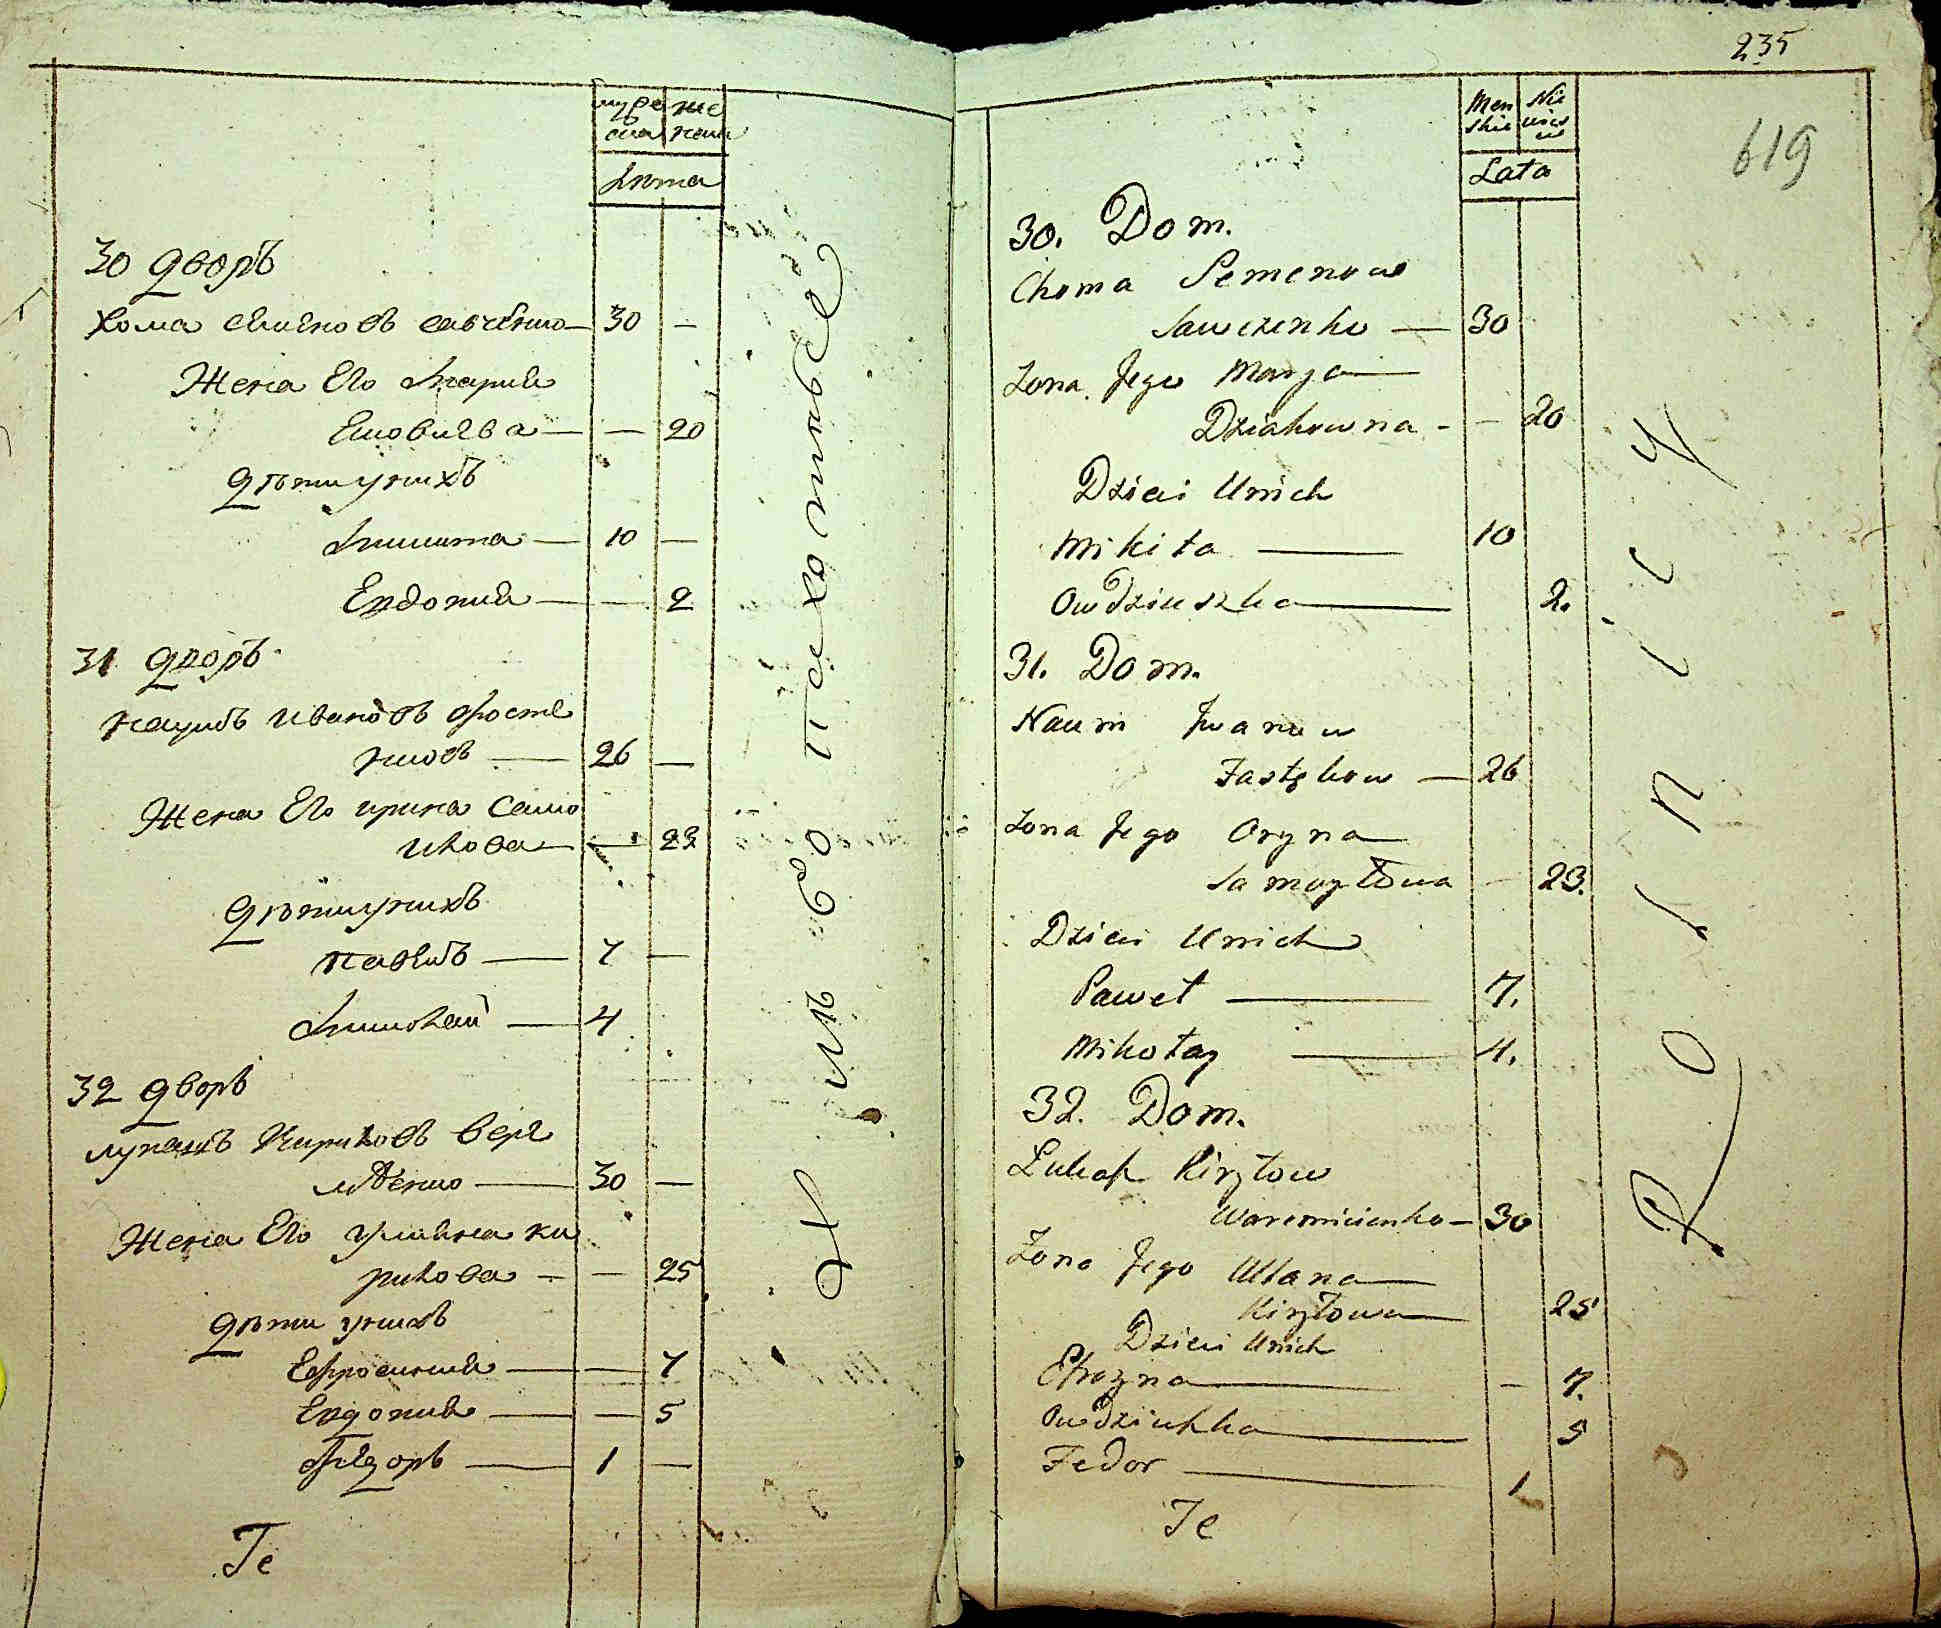 муже
ска
же
ска
Лѣта
30 дворъ
Хома Семеновъ Савченко — 30 —
Жена Его Марія
— — 20
Дѣти у нихъ
Микита — 10 —
Евдокия — — 2
31 дворъ
Наумъ Ивановъ
26 —
Жена Его Ирина Само
йлова — — 23
Дѣти у нихъ
Павелъ — 7 —
Миколай — 4
32 дворъ
Лукашъ Кириловъ Вере
мѣенко — 30 —
Жена Его Уляна Ки
рилова — — 25
Дѣти у нихъ
Ефросиния — — 7
Евдокия — — 5
Федоръ — 1 —
Те
235
619
Men
skie
Nie
wies
cie
Lata
30. Dom.
Choma Semenow
Sawczenko — 30
Zona Jego Marya
Dziakowna - - 20
Dzieci Unich
Mikita — 10
Owdziuszka — 2.
31. Dom.
Naum Iwanow
Fastykow — 26
Zona Jego Oryna
Samoyłowa - 23.
Dzieci Unich
Paweł — 7.
Mikołay — 4.
32. Dom.
Łukasz Kiryłow
Waremiienko — 30
Zona Jego Ulana
Kiryłowa 25
Dzieci Unich
Efrozyna — - 7.
Owdziuszka — 5
Fedor — 1
Te
Rolnicy